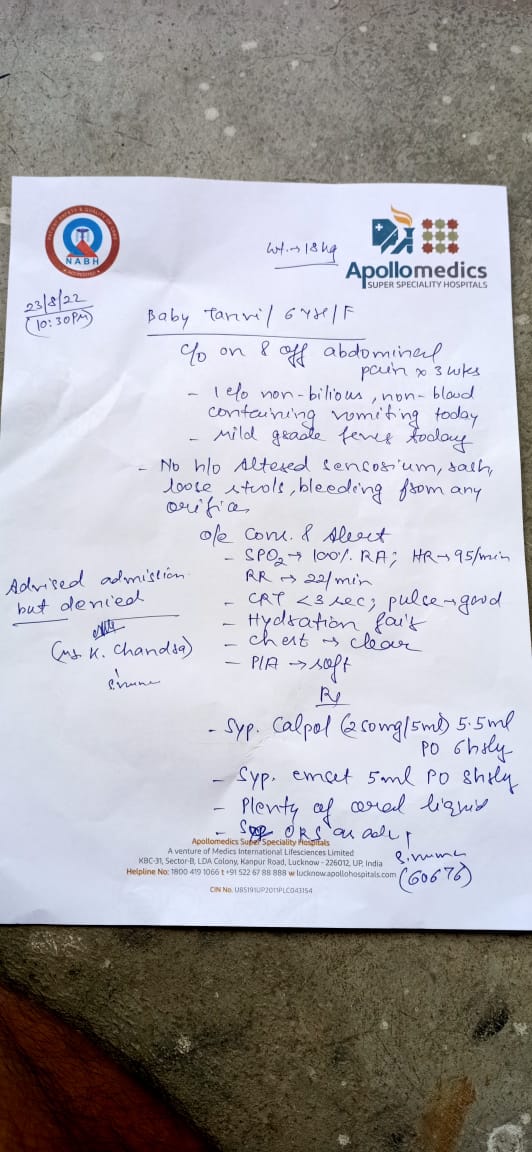 NABH
Wt. → 18 kg
Apollomedics
SUPER SPECIALITY HOSPITALS
23/8/22
(10:30PM)
Baby Tanvi / 6 yrs / F
c/o on & off abdominal
pain x 3 wks
- 1 e/o non-bilious, non-blood
containing vomiting today
- Mild grade fever today
- No h/o Altered sensorium, rash,
loose stools, bleeding from any
orifice
o/e Conc. & Alert
- SPO2 → 100% RA; HR → 95/min
RR → 22/min
- CRT <3 sec; pulse → good
- Hydration fair
- chest → clear
- P/A → soft
Advised admission
but denied
(Ms. K. Chandra)
Rx
- Syp. Calpol (250mg/5ml) 5.5ml
PO 6hrly
- Syp. emset 5ml PO 8hrly
- Plenty of oral liquid
- ORS as adv
Apollomedics Super Speciality Hospitals
A venture of Medics International Lifesciences Limited
KBC-31, Sector-B, LDA Colony, Kanpur Road, Lucknow - 226012, UP, India
Helpline No: 1800 419 1066 t +91 522 67 88 888 w lucknow.apollohospitals.com
(60676)
CIN No. U85191UP2011PLC043154